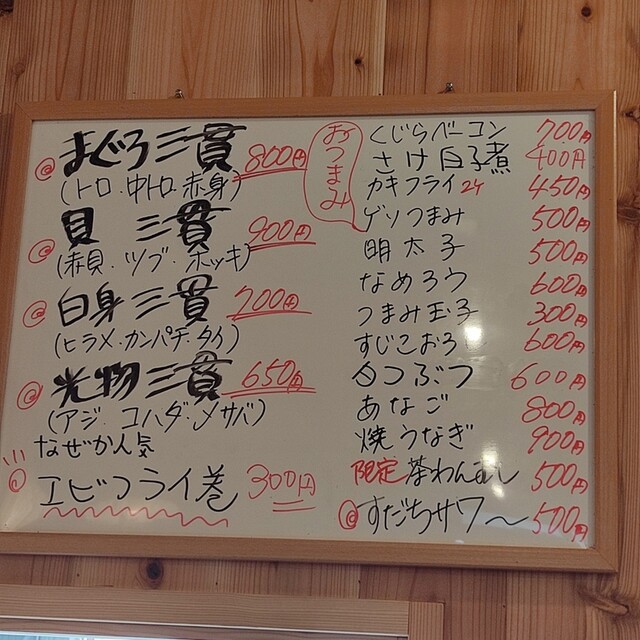 まぐろ三貫 800円
(トロ.中トロ.赤身)
貝 三貫 900円
(赤貝.ツブ.ホッキ)
白身三貫 700円
(ヒラメ.カンパチ.タイ)
光物三貫 650円
(アジ.コハダ.〆サバ)
なぜか人気
エビフライ巻 300円
おつまみ
くじらベーコン 700円
さけ白子煮 400円
カキフライ2ケ 450円
ゲソつまみ 500円
明太子 500円
なめろう 600円
つまみ玉子 300円
すじこおろし 600円
白つぶつ 600円
あなご 800円
焼うなぎ 900円
限定 茶わんむし 500円
すだちサワー 500円